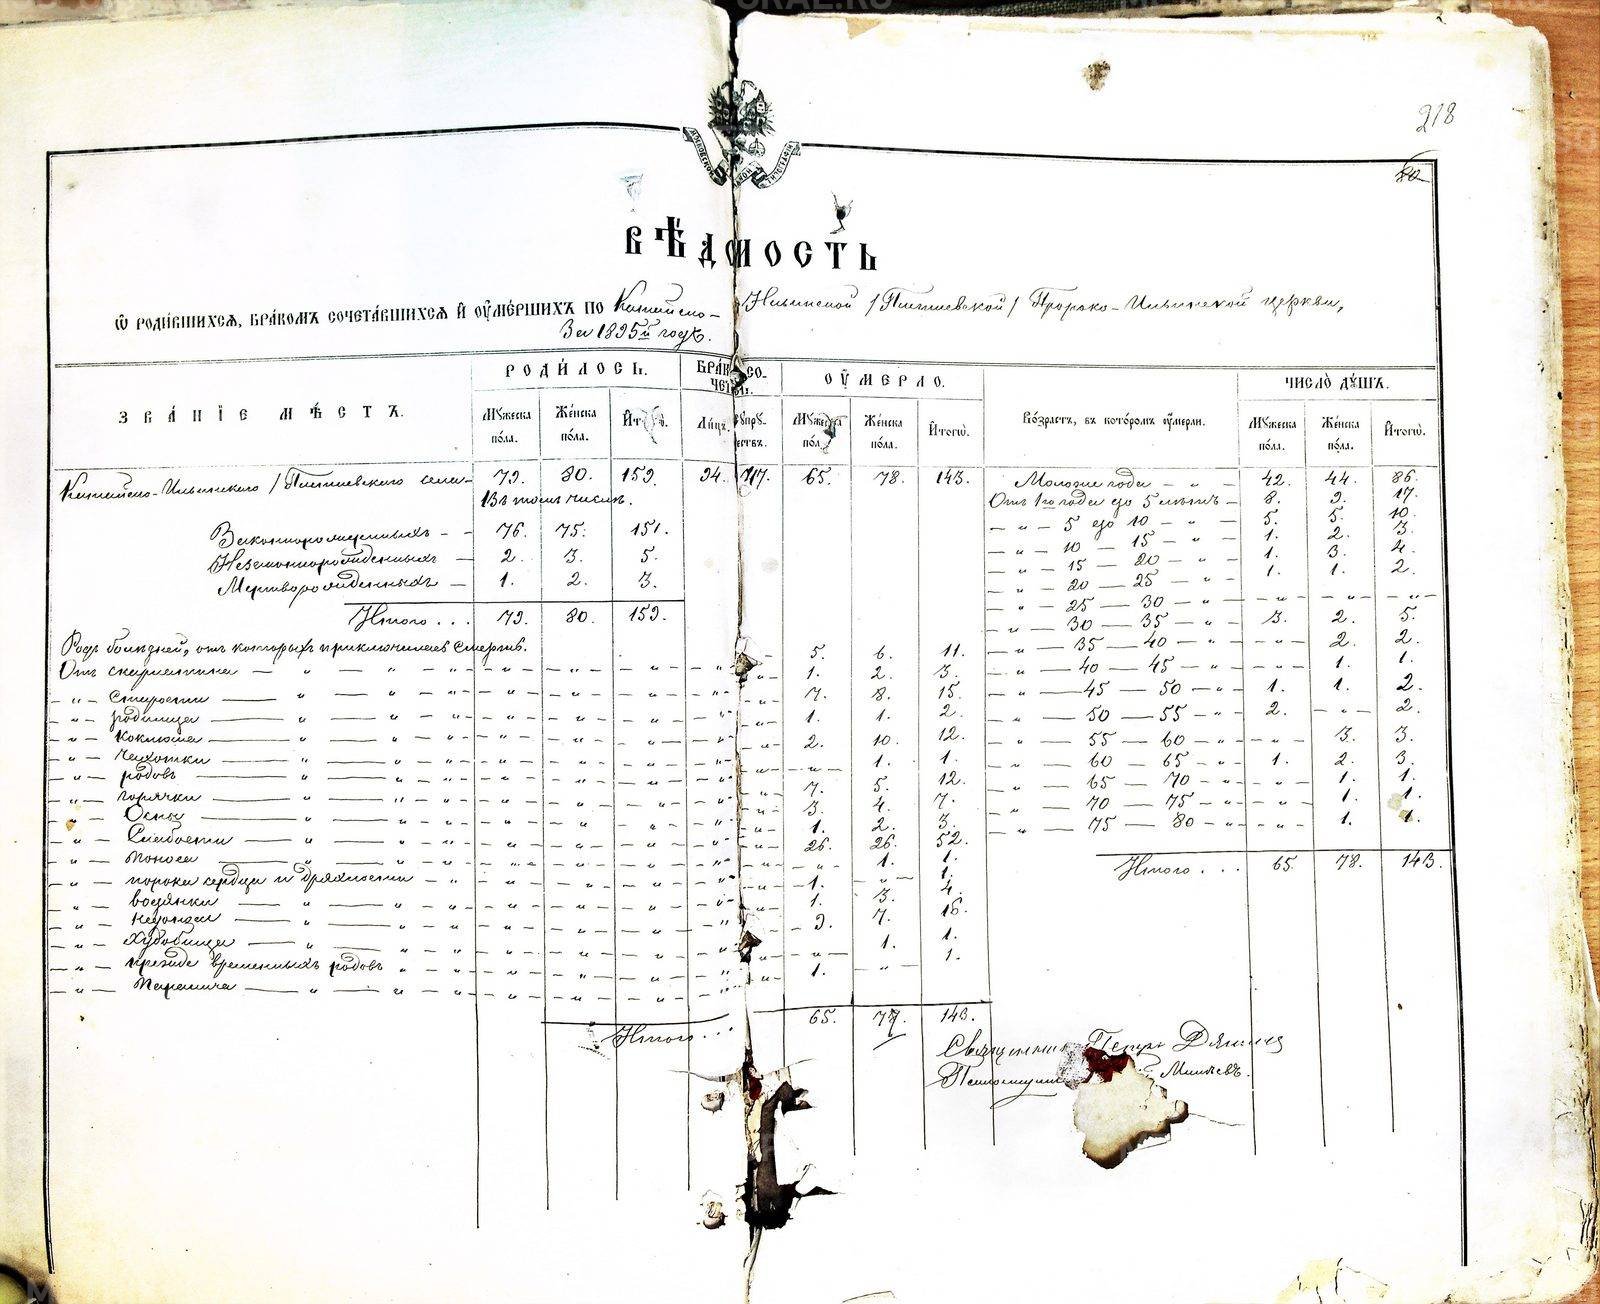 218
80
МОСКОВСКОЙ СѴНОД. ТИПОГРАФІИ
ВѢДОМОСТЬ
Ѡ РОДИВШИХСЯ, БРАКОМЪ СОЧЕТАВШИХСЯ И ОУМЕРШИХЪ ПО Ильинской / Пророко-Ильинской церкви,
За 1895й годъ.
ЗВАНІЕ МѢСТЪ. РОДИЛОСЬ. БРАКОСОЧЕТ. ОУМЕРЛО. Возрастъ, въ которомъ оумерли. ЧИСЛО ДУШЪ.
Мужеска пола. Женска пола. Итогѡ. Лицъ. Супружествъ. Мужеска пола. Женска пола. Итогѡ. Мужеска пола. Женска пола. Итогѡ.
села 79. 80. 159. 34. 17. 65. 78. 143. Моложе года 42. 44. 86.
Въ томъ числѣ. Отъ 1го года до 5 лѣтъ 8. 9. 17.
Законнорожденныхъ 76. 75. 151. 5 до 10 5. 5. 10.
Незаконнорожденныхъ 2. 3. 5. 10 — 15 1. 2. 3.
Мертворожденныхъ 1. 2. 3. 15 — 20 1. 3. 4.
20 — 25 1. 1. 2.
Итого... 79. 80. 159. 25 — 30
30 — 35 3. 2. 5.
Родъ болѣзней, отъ которыхъ приключилась смерть. 35 — 40 2. 2.
Отъ скарлатина 5. 6. 11. 40 — 45 1. 1.
Старости 1. 2. 3. 45 — 50 1. 1. 2.
родимца 7. 8. 15. 50 — 55 2. 2.
Коклюша 1. 1. 2. 55 — 60 3. 3.
Чахотки 2. 10. 12. 60 — 65 1. 2. 3.
родовъ 1. 1. 65 — 70 1. 1.
горячки 7. 5. 12. 70 — 75 1. 1.
Оспы 3. 4. 7. 75 — 80 1. 1.
Слабости 1. 2. 3.
Поноса 26. 26. 52. Итого... 65. 78. 143.
порока сердца и дряхлости 1. 1.
водянки 1. 1.
1. 3. 4.
Худобища 9. 7. 16.
прежде временныхъ родовъ 1. 1.
Паралича 1. 1.
Итого... 65. 143.
Священникъ Петръ
Псаломщикъ